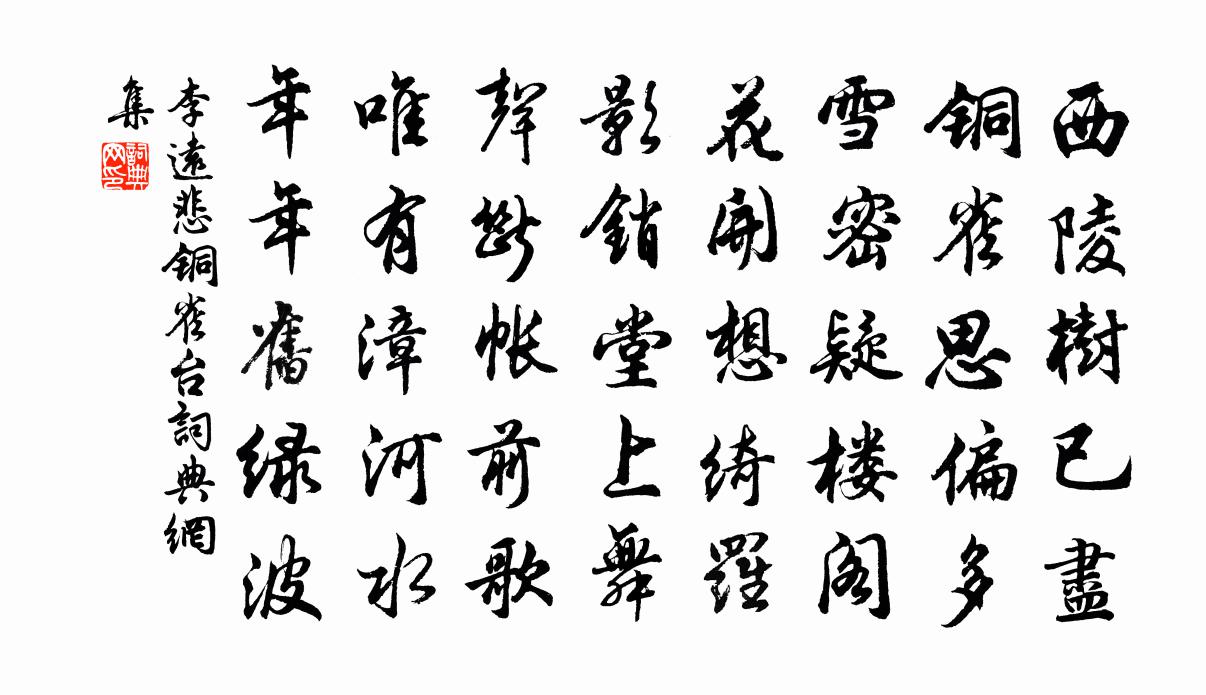 西陵樹已盡
銅雀思偏多
雪密疑楼阁
花開想綺羅
影銷堂上舞
聲斷帳前歌
唯有漳河水
年年舊绿波
李遠悲銅雀台詞典網
集
詞典
网印